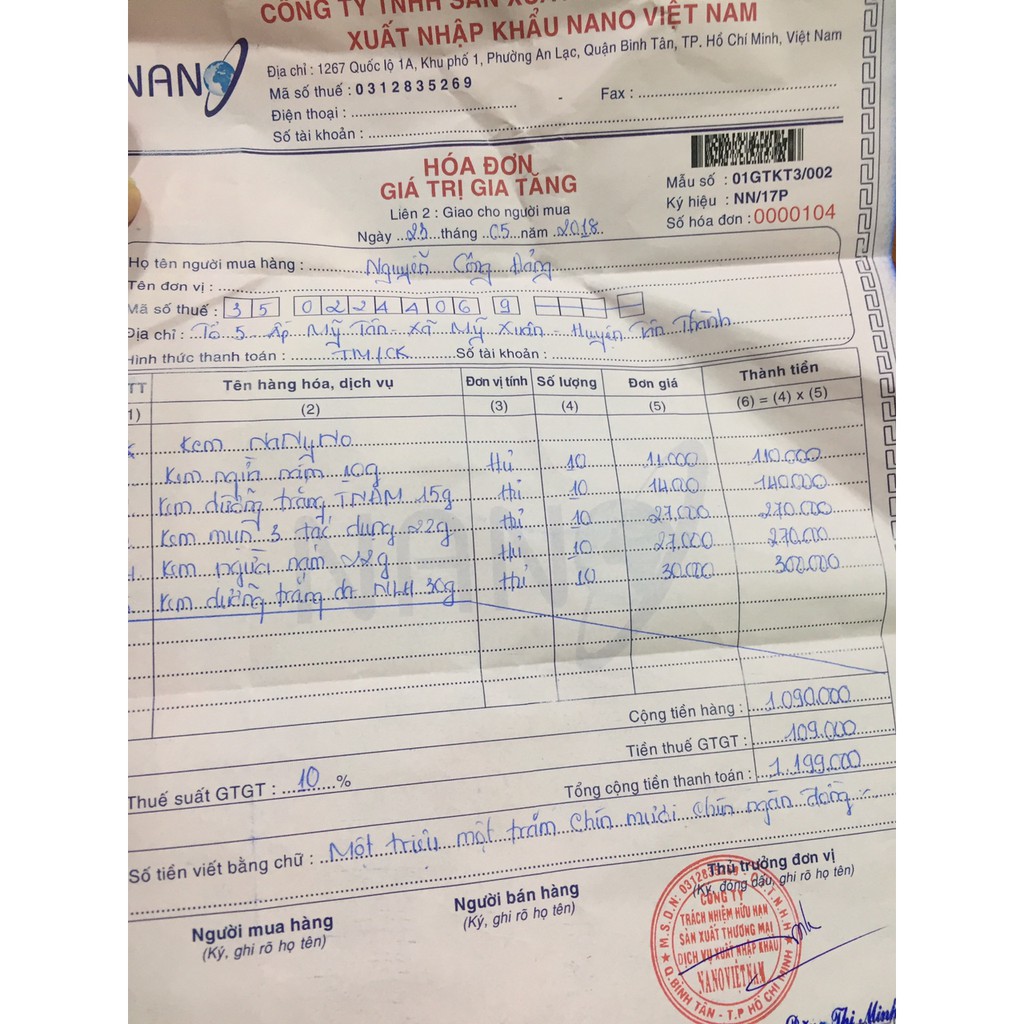 CÔNG TY TNHH SẢN XUẤT
XUẤT NHẬP KHẨU NANO VIỆT NAM
NANO
Địa chỉ : 1267 Quốc lộ 1A, Khu phố 1, Phường An Lạc, Quận Bình Tân, TP. Hồ Chí Minh, Việt Nam
Mã số thuế : 0312835269
Điện thoại : - Fax :
Số tài khoản :
HÓA ĐƠN
GIÁ TRỊ GIA TĂNG
Liên 2 : Giao cho người mua
Ngày 28 tháng 05 năm 2018
Mẫu số : 01GTKT3/002
Ký hiệu : NN/17P
Số hóa đơn : 0000104
Họ tên người mua hàng : Nguyễn Công Đảng
Tên đơn vị :
Mã số thuế : 35 0224406 9
Địa chỉ : Tổ 5 Ấp Mỹ Tân - Xã Mỹ Xuân - Huyện Tân Thành
Hình thức thanh toán : TM/CK Số tài khoản :
TT Tên hàng hóa, dịch vụ Đơn vị tính Số lượng Đơn giá Thành tiền
1) (2) (3) (4) (5) (6) = (4) x (5)
Kem NaNyNo
Kem ngừa nám 10g Hủ 10 11.000 110.000
Kem dưỡng trắng TNÁM 15g Hủ 10 14.000 140.000
Kem mụn 3 tác dụng 22g Hủ 10 27.000 270.000
Kem ngừa nám 22g Hủ 10 27.000 270.000
Kem dưỡng trắng da NLH 30g Hủ 10 30.000 300.000
NANO
Cộng tiền hàng : 1.090.000
Tiền thuế GTGT : 109.000
Thuế suất GTGT : 10 %
Tổng cộng tiền thanh toán : 1.199.000
Số tiền viết bằng chữ : Một triệu một trăm chín mươi chín ngàn đồng
Người mua hàng
(Ký, ghi rõ họ tên)
Người bán hàng
(Ký, ghi rõ họ tên)
Thủ trưởng đơn vị
(Ký, đóng dấu, ghi rõ họ tên)
CÔNG TY
TRÁCH NHIỆM HỮU HẠN
SẢN XUẤT THƯƠNG MẠI
DỊCH VỤ XUẤT NHẬP KHẨU
NANO VIỆT NAM
Q.BÌNH TÂN - T.P HỒ CHÍ MINH
Thị Minh